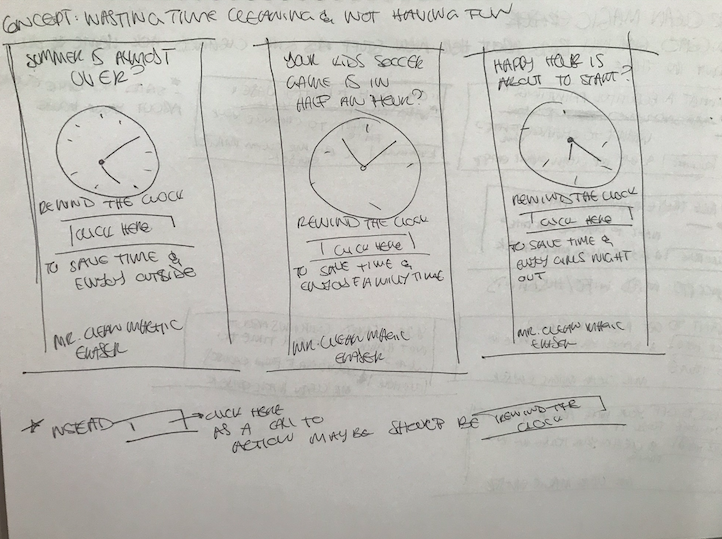 CONCEPT: WASTING TIME CLEANING & NOT HAVING FUN
SUMMER IS ALMOST
OVER?
REWIND THE CLOCK
CLICK HERE
TO SAVE TIME &
ENJOY OUTSIDE
MR. CLEAN MAGIC
ERASER
YOUR KIDS SOCCER
GAME IS IN
HALF AN HOUR?
REWIND THE CLOCK
CLICK HERE
TO SAVE TIME &
ENJOY FAMILY TIME
MR. CLEAN MAGIC
ERASER
HAPPY HOUR IS
ABOUT TO START?
REWIND THE CLOCK
CLICK HERE
TO SAVE TIME &
ENJOY GIRLS NIGHT
OUT
MR. CLEAN MAGIC
ERASER
* INSTEAD
CLICK HERE
AS A CALL TO
ACTION MAYBE SHOULD BE
REWIND THE
CLOCK